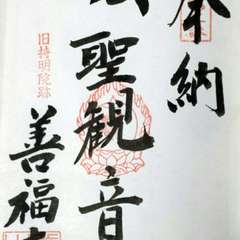 奉納
聖観音
旧持明院跡
善福